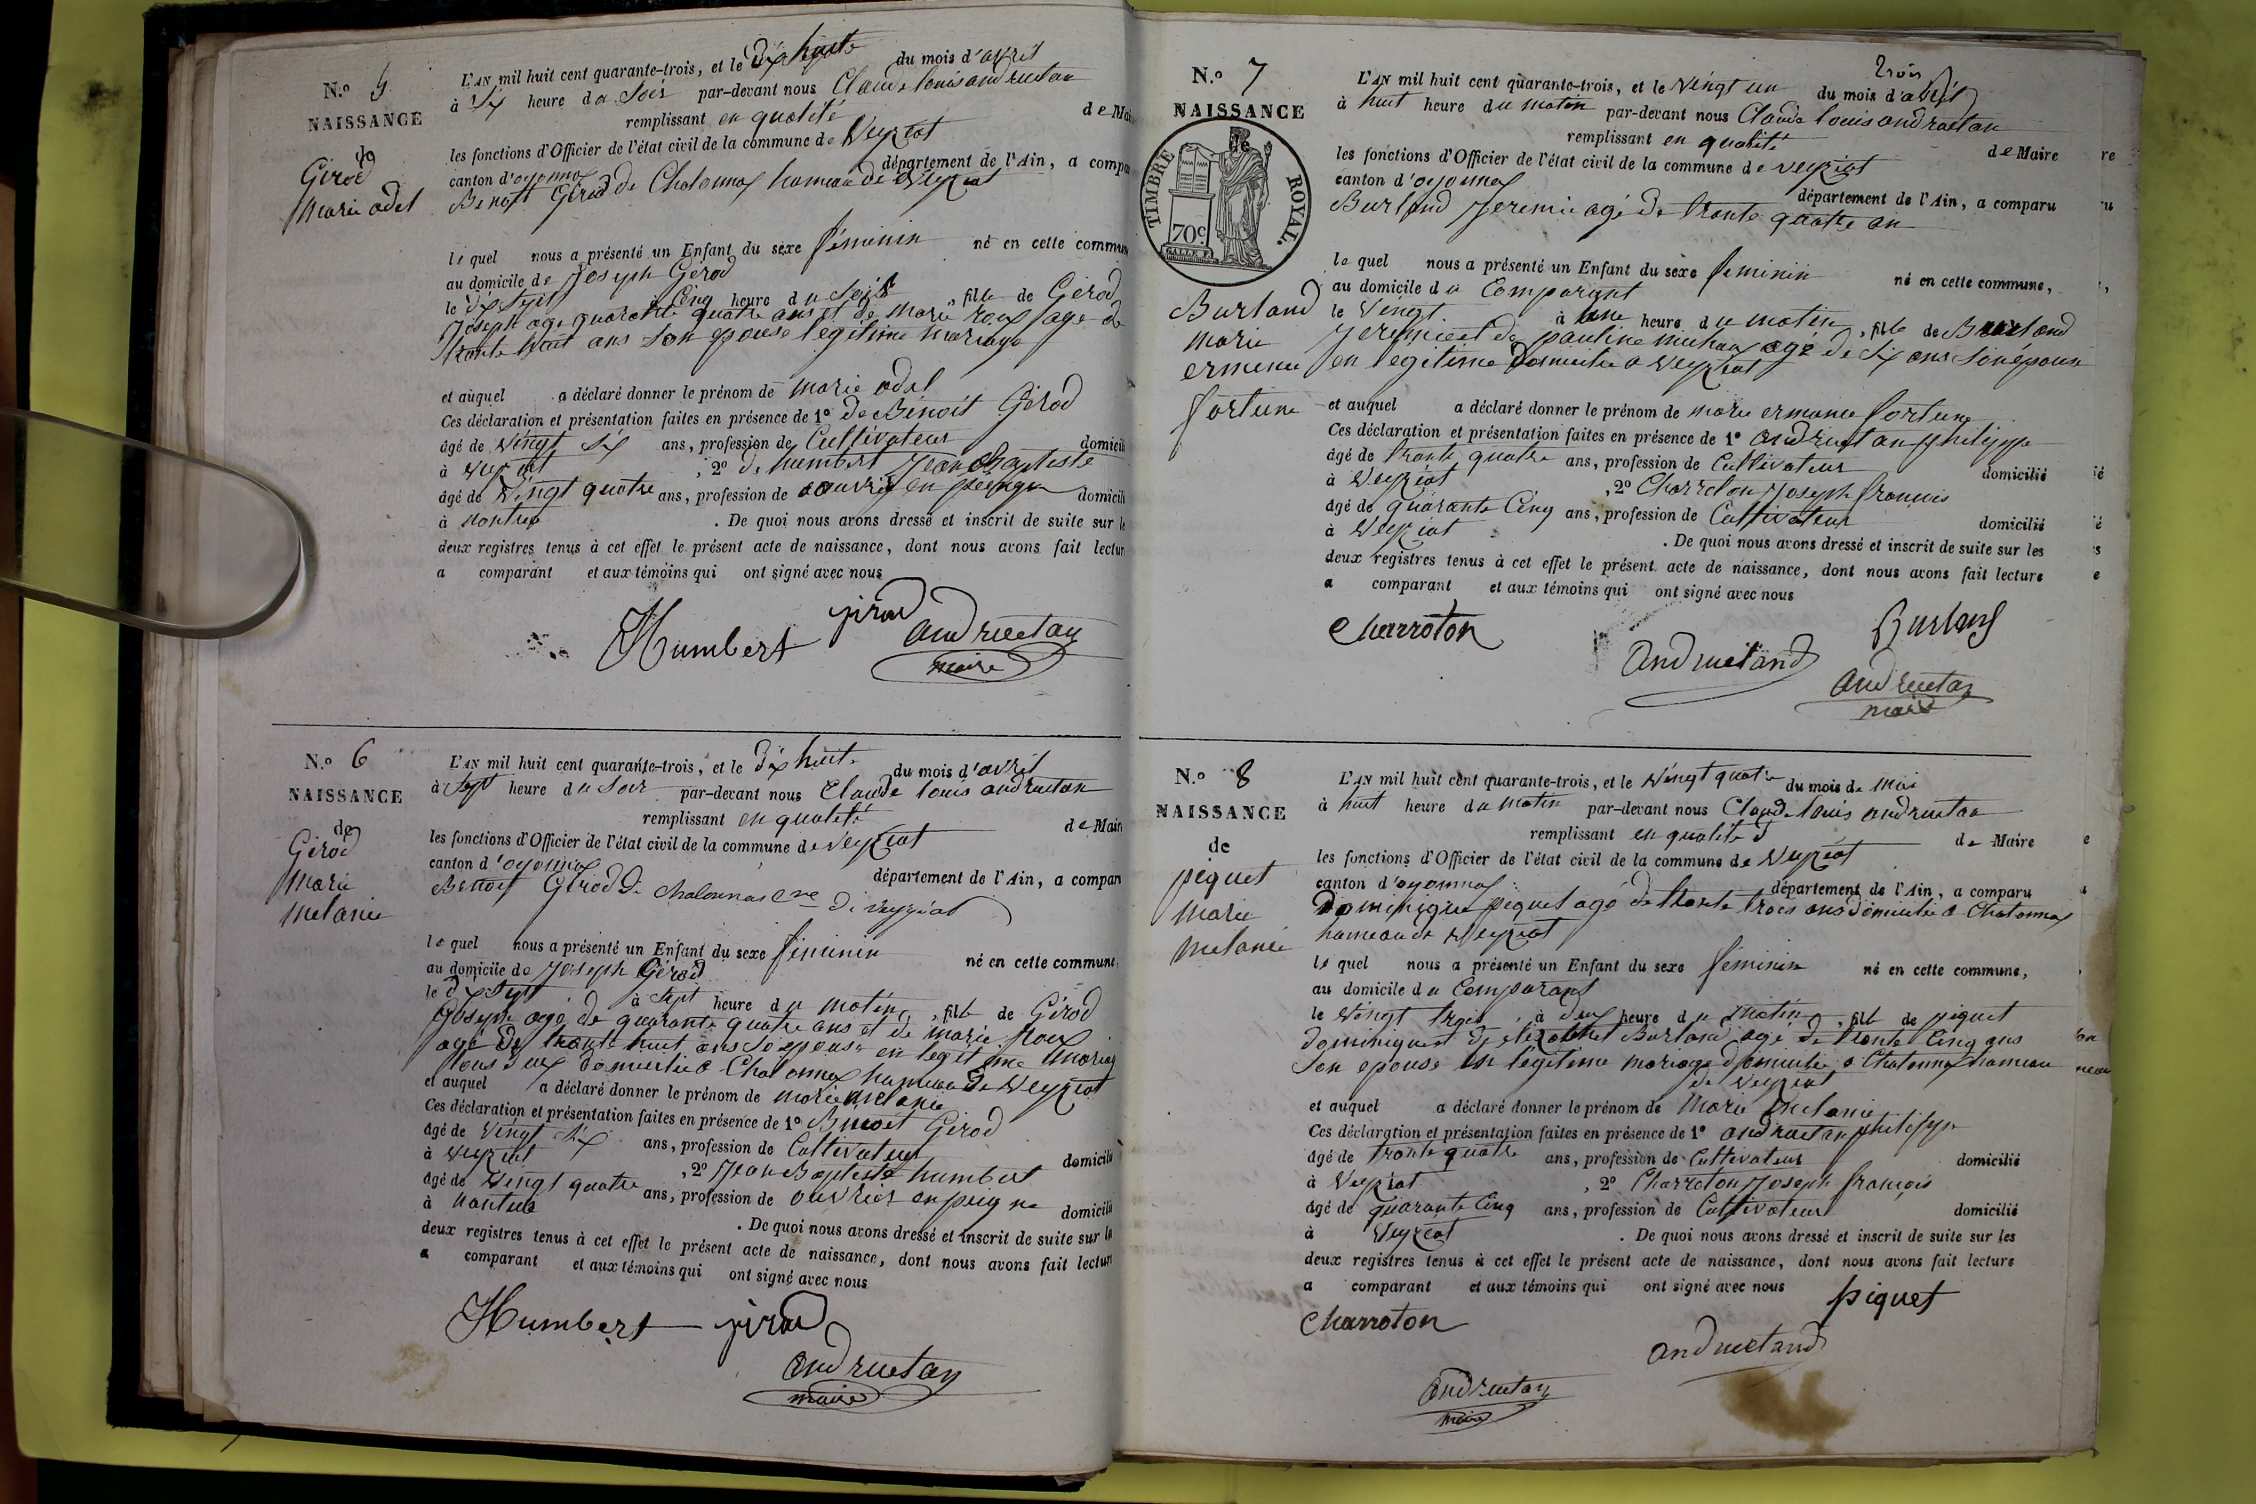 N.º 5
NAISSANCE
de
Girod
Marie adel
L'AN mil huit cent quarante-trois, et le dix huit du mois d'avril
à six heure du Soir par-devant nous Claude louis andruetan
remplissant en qualité de Mai
les fonctions d'Officier de l'état civil de la commune de Veyziat
canton d'oyonnax département de l'Ain, a compa
Benoit Girod de Chatonnax hameau de Veyziat
le quel nous a présenté un Enfant du sexe féminin né en cette commun
au domicile de Joseph Gerod
le dix sept à Cinq heure du Soir, fille de Gerod
Joseph age quarante quatre ans et de Marie roux age de
trante huit ans Son epouse legitime mariage
et auquel a déclaré donner le prénom de marie adel
Ces déclaration et présentation faites en présence de 1º de Bénoit Girod
âgé de vingt six ans, profession de Cultivateur domicili
à veyziat , 2º de humbert Jean Baptiste
âgé de Vingt quatre ans, profession de ouvrier en peigne domicili
à nantua . De quoi nous avons dressé et inscrit de suite sur le
deux registres tenus à cet effet le présent acte de naissance, dont nous avons fait lectur
a comparant et aux témoins qui ont signé avec nous
Humbert girod andruetan
maire
N.º 6
NAISSANCE
de
Girod
Marie
Melanie
L'AN mil huit cent quarante-trois, et le dix huit du mois d'avril
à Sept heure du Soir par-devant nous Claude louis andruetan
remplissant en qualité de Mair
les fonctions d'Officier de l'état civil de la commune de Veyziat
canton d'oyonnax département de l'Ain, a compar
Benoit Girod de chatonnas Cne de veyziat
le quel nous a présenté un Enfant du sexe féminin né en cette commune,
au domicile de Joseph Gérod
le dix Sept à sept heure du matin, fille de Gérod
Joseph agé de quarante quatre ans et de marie Roux
agé de trante huit ans So epouse en legitime mariag
tous deux domicilié à Chatonnax hameau de Veyziat
et auquel a déclaré donner le prénom de marie melanie
Ces déclaration et présentation faites en présence de 1º Benoit Girod
âgé de vingt six ans, profession de Cultivateur domicili
à veyziat , 2º Jean Baptiste humbert
âgé de Vingt quatre ans, profession de ouvrier en peigne domicili
à nantua . De quoi nous avons dressé et inscrit de suite sur le
deux registres tenus à cet effet le présent acte de naissance, dont nous avons fait lectur
a comparant et aux témoins qui ont signé avec nous
Humbert girod
andruetan
maire
N.º 7
NAISSANCE
TIMBRE ROYAL.
70c.
Burland
marie
ermence
fortune
trois
L'AN mil huit cent quarante-trois, et le Vingt un du mois d'avril
à huit heure du matin par-devant nous Claude louis andruetan
remplissant en qualité de Maire
les fonctions d'Officier de l'état civil de la commune de veyziat
canton d'oyonnax département de l'Ain, a comparu
Burland Jeremie agé de trante quatre an
le quel nous a présenté un Enfant du sexe feminin né en cette commune,
au domicile du Comparant
le Vingt à une heure du matin, fille de Burland
Jeremie et de pauline michaux age de six ans Son épouse
en legitime domicilié a Veyziat
et auquel a déclaré donner le prénom de marie ermence fortune
Ces déclaration et présentation faites en présence de 1º andruetan philippe
âgé de trante quatre ans, profession de Cultivateur domicilié
à Veyziat , 2º Charroton Joseph françois
âgé de quarante Cinq ans, profession de Cultivateur domicilié
à Veyziat . De quoi nous avons dressé et inscrit de suite sur les
deux registres tenus à cet effet le présent acte de naissance, dont nous avons fait lecture
a comparant et aux témoins qui ont signé avec nous
charroton andruetand Burland
andruetan
maire
N.º 8
NAISSANCE
de
piquet
Marie
melanie
L'AN mil huit cent quarante-trois, et le Vingt quatre du mois de mai
à huit heure du matin par-devant nous Claude louis andruetan
remplissant en qualité de Maire
les fonctions d'Officier de l'état civil de la commune de Veyziat
canton d'oyonnax département de l'Ain, a comparu
Dominique piquet agé de trante trois ans domicilié a Chatonnax
hameau de Veyziat
le quel nous a présenté un Enfant du sexe féminin né en cette commune,
au domicile du Comparant
le Vingt trois, à deux heure du matin, fille de piquet
dominique et de elizabhet Burland agé de trante Cinq ans
Son epouse en legitime mariage domicilié a Chatonnax hameau
de Veyziat
et auquel a déclaré donner le prénom de Marie melanie
Ces déclaration et présentation faites en présence de 1º andruetan philippe
âgé de trante quatre ans, profession de Cultivateur domicilié
à Veyziat , 2º Charroton Joseph françois
âgé de quarante Cinq ans, profession de Cultivateur domicilié
à Veyziat . De quoi nous avons dressé et inscrit de suite sur les
deux registres tenus à cet effet le présent acte de naissance, dont nous avons fait lecture
a comparant et aux témoins qui ont signé avec nous
charroton piquet
andruetand
andruetan
maire